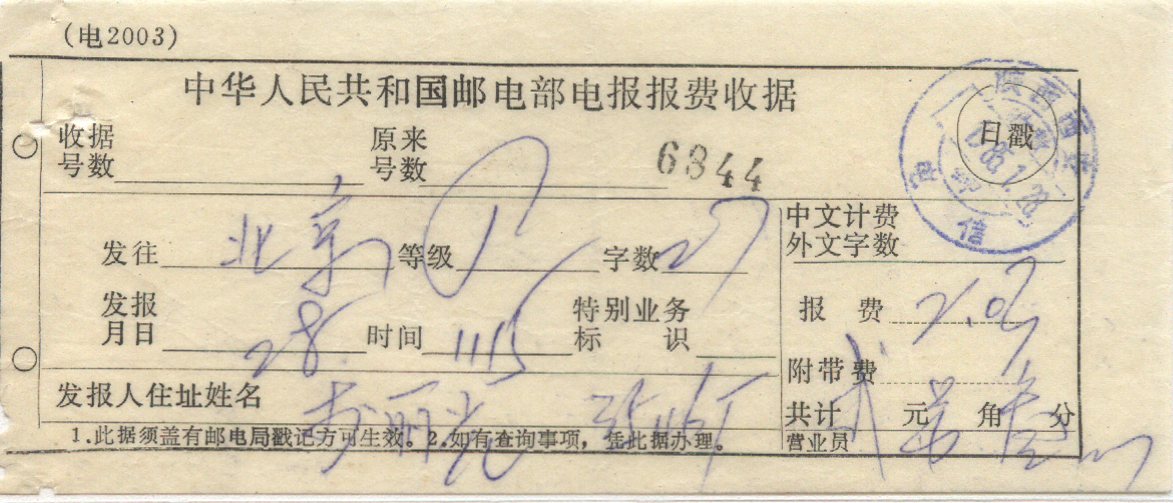 (电2003)
中华人民共和国邮电部电报报费收据
收据号数 原来号数 6844
日戳
发往 北京 等级 字数 27
中文计费
外文字数
发报月日 28 时间 1115 特别业务标识
报 费
附带费
发报人住址姓名
共计 元 角 分
1.此据须盖有邮电局戳记方可生效。2.如有查询事项，凭此据办理。
营业员